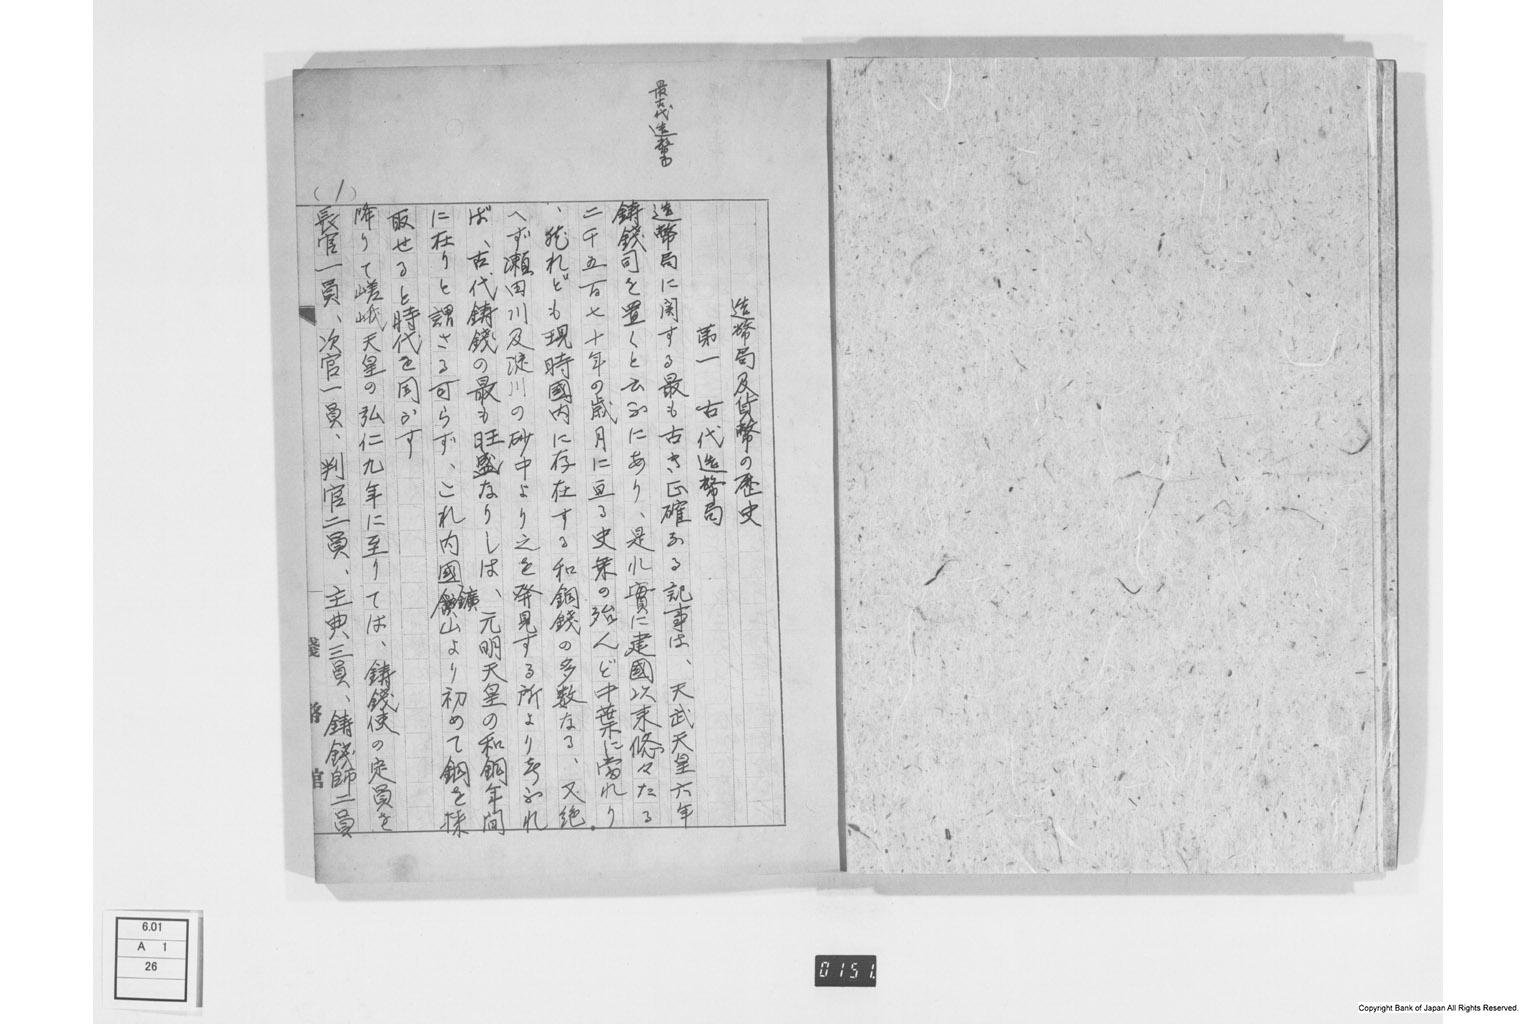 最古代造幣局
造幣局及貨幣の歴史
第一 古代造幣局
造幣局に関する最も古き正確なる記事は、天武天皇六年
鋳錢司を置くと云ふにあり、是れ實に建國以来悠々たる
二千五百七十年の歳月に亘る史乗の殆んど中葉に當れり
、然れども現時國内に存在する和銅錢の多数なる、又絶
へず瀬田川及淀川の砂中より之を発見する所より考ふれ
ば、古代鋳錢の最も旺盛なりしは、元明天皇の和銅年間
に在りと謂さる可らず、これ内國鑛山より初めて銅を採
取せると時代を同ふす
降りて嵯峨天皇の弘仁九年に至りては、鋳錢使の定員を
長官一員、次官一員、判官二員、主典三員、鋳錢師二員
(1)
6.01
A 1
26
0151.
Copyright Bank of Japan All Rights Reserved.